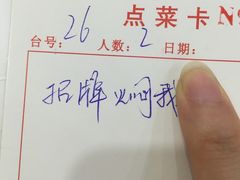 点菜卡 No
台号: 26 人数: 2 日期:
招牌焖我